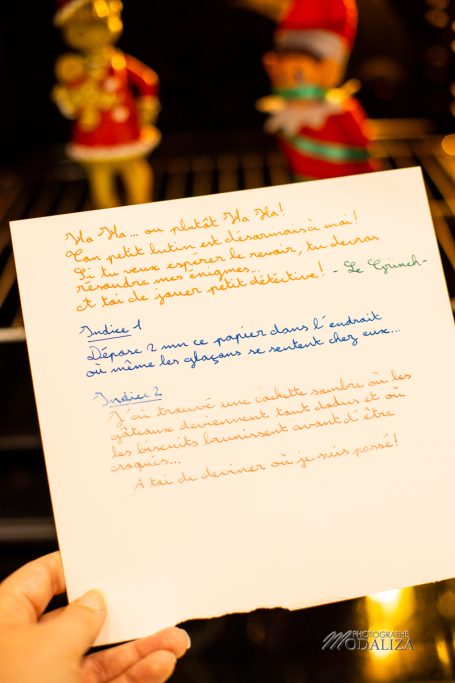 Ha Ha... ou plutôt Ha Ha!
Ton petit lutin est désormais à moi!
Si tu veux espérer le revoir, tu devras
résoudre mes énigmes...
et toi de jouer petit détective! - Le Grinch -
Indice 1
Dépose 2 mn ce papier dans l'endroit
où même les glaçons se sentent chez eux...
Indice 2
J'ai trouvé une cachette sombre où les
gâteaux deviennent tout dodus et où
les biscuits brunissent avant d'être
croqués...
A toi de deviner où je suis passé!
PHOTOGRAPHE
MODALIZA